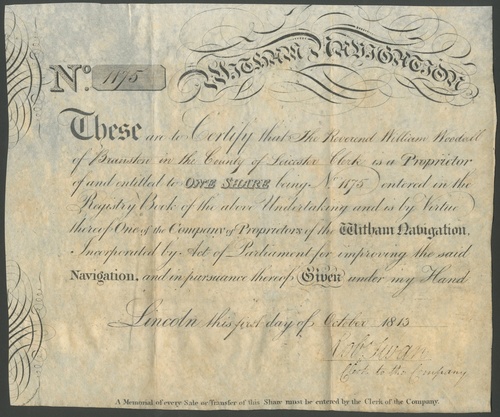 WITHAM NAVIGATION
No. 1175
These are to Certify that The Reverend William Woodall
of Branston in the County of Leicester Clerk is a Proprietor
of and entitled to ONE SHARE being No. 1175 entered in the
Registry Book of the above Undertaking and is by Virtue
thereof One of the Company of Proprietors of the Witham Navigation,
Incorporated by Act of Parliament for improving the said
Navigation, and in pursuance thereof Given under my Hand
Lincoln this first day of October 1813
Robt. Swan
Clerk to the Company
A Memorial of every Sale or Transfer of this Share must be entered by the Clerk of the Company.